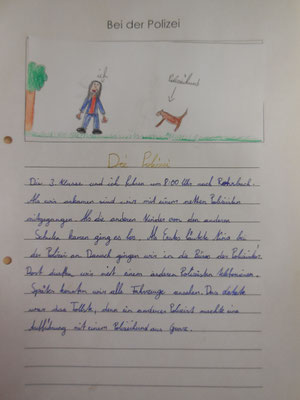 Bei der Polizei
ich
Polizeihund
Die Polizei
Die 3. Klasse und ich fuhren um 8:00 Uhr nach Rohrbach.
Als wir ankamen sind uns mit einem netten Polizisten
mitgegangen. Als die anderen Kinder von der anderen
Schule kamen ging es los. Als Erstes läutete Miri bei
der Polizei an. Danach gingen wir in die Büros der Polizisten.
Dort durften wir mit einem anderen Polizisten telefonieren.
Später konnten wir alle Fahrzeuge ansehen. Das
war das Tollste, denn ein anderer Polizist machte eine
Aufführung mit einem Polizeihund aus